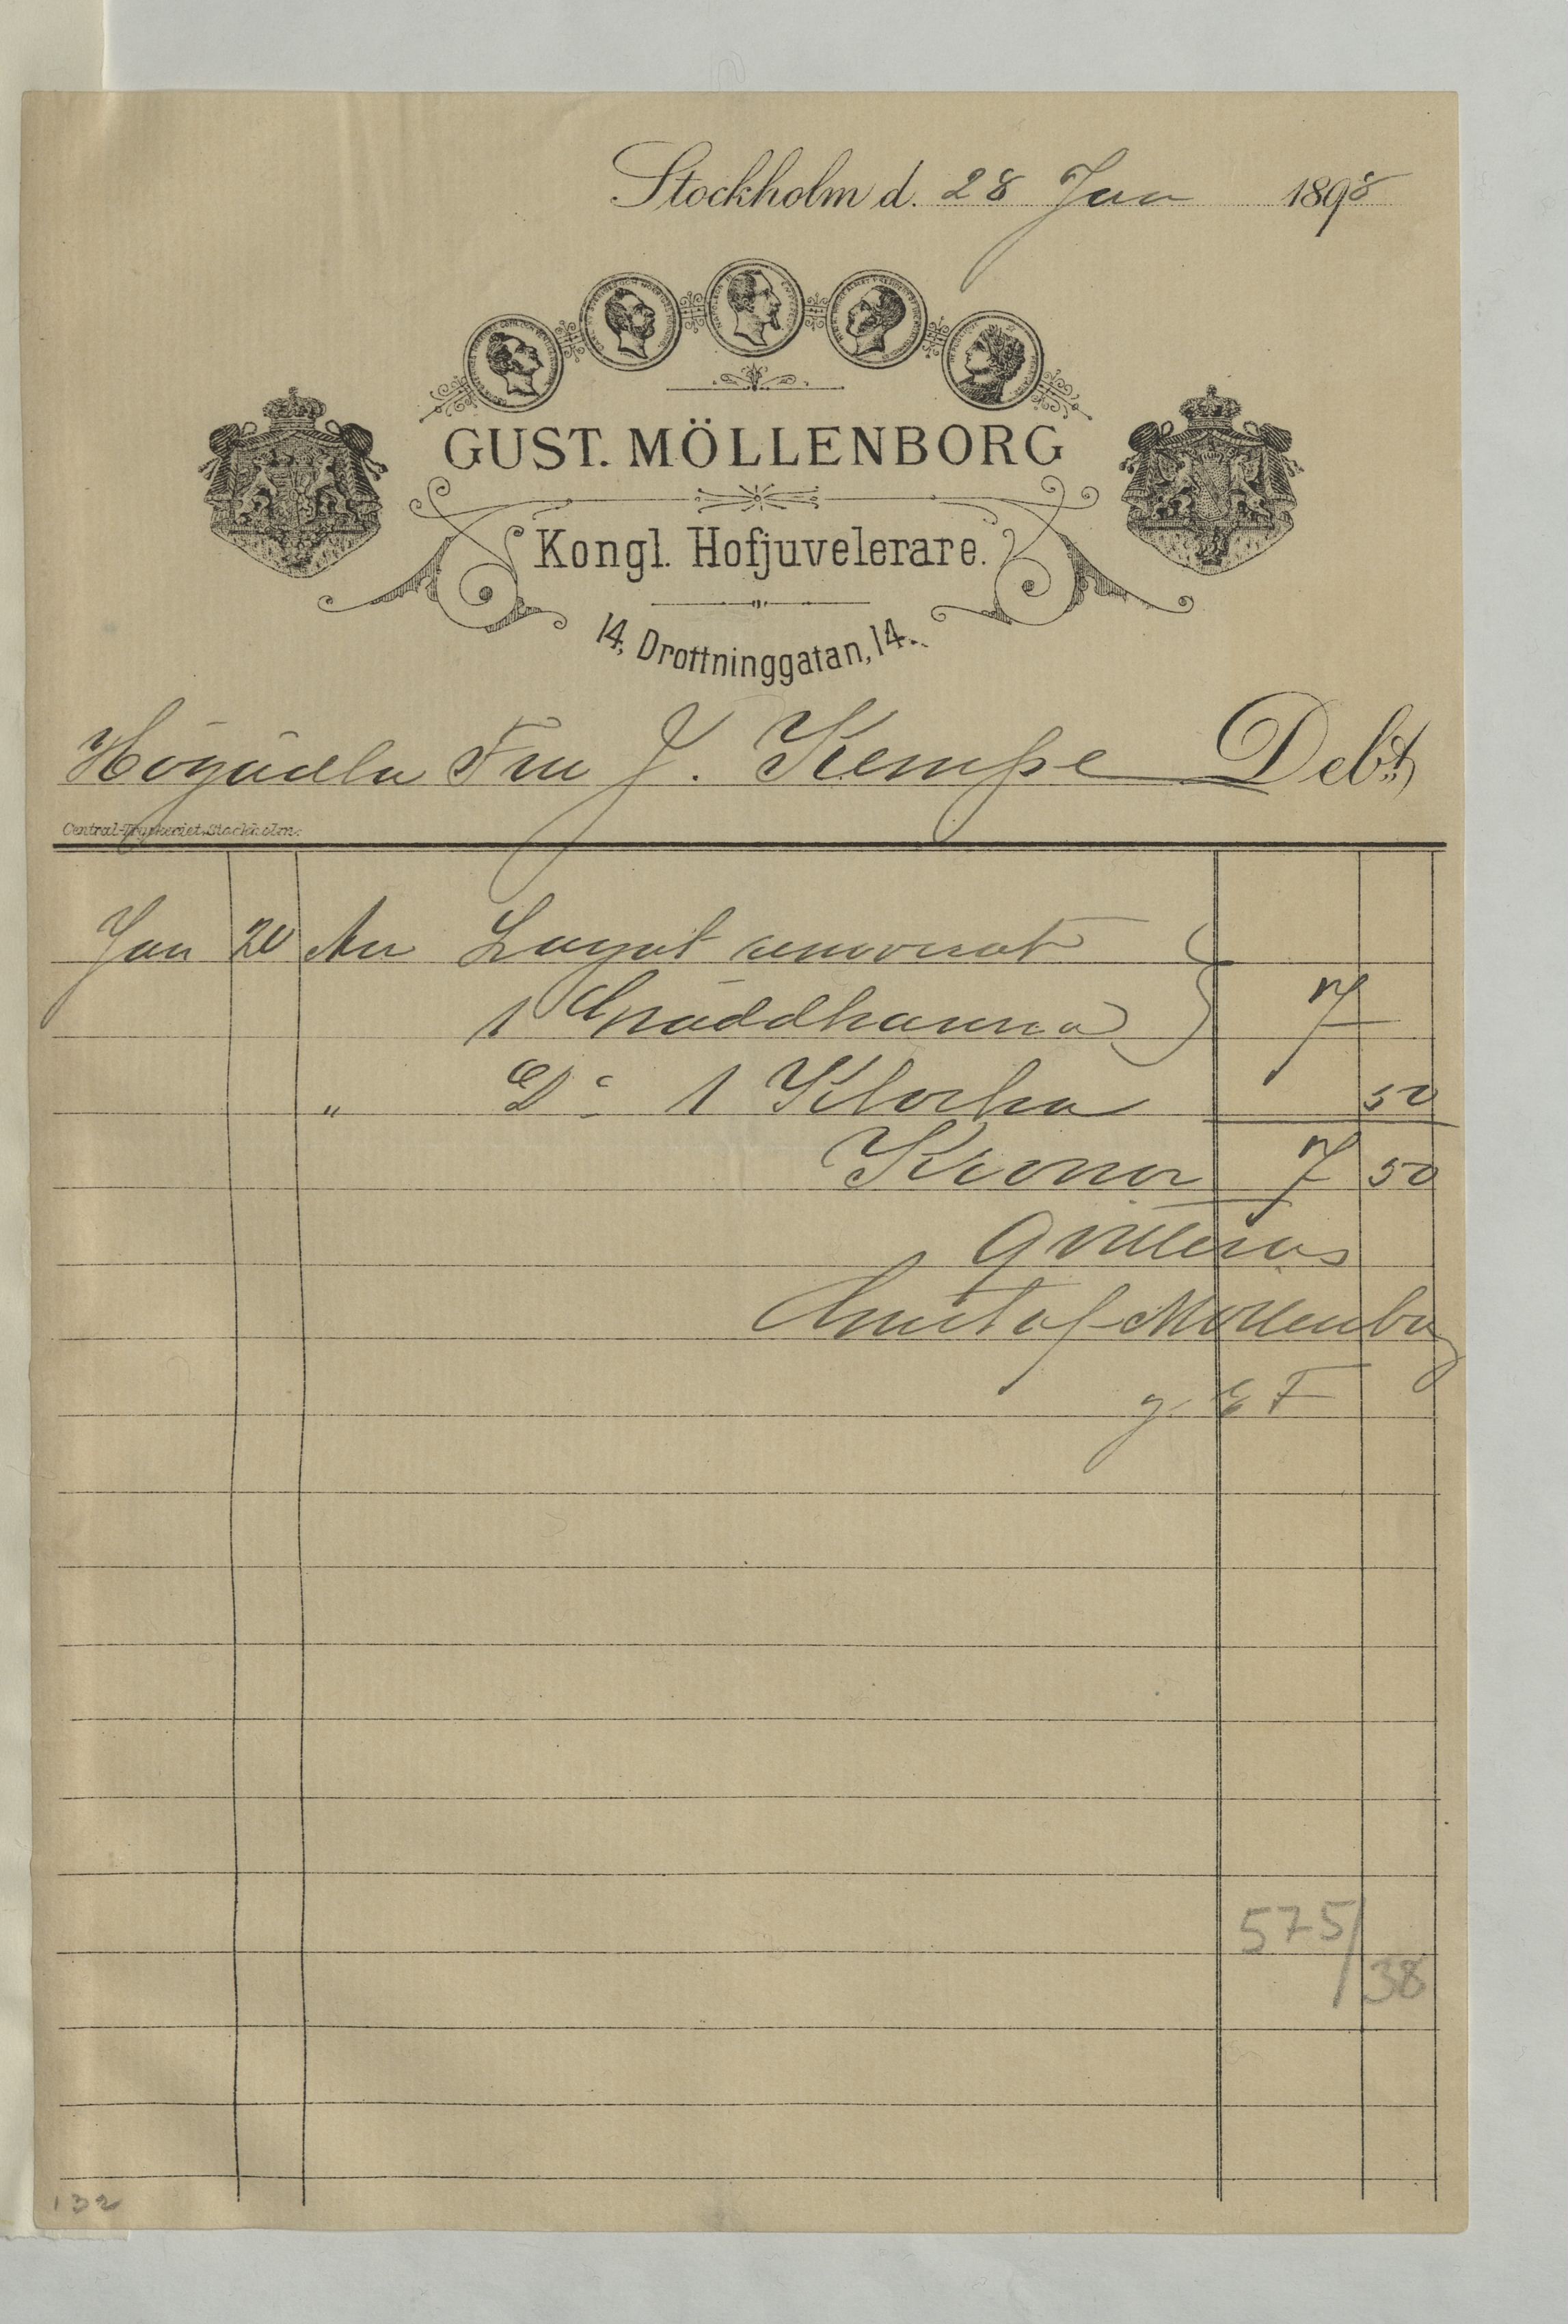 Stockholm d. 28 Jan 1898
GUST. MÖLLENBORG
Kongl. Hofjuvelerare.
14, Drottninggatan, 14.
Högädla Fru J. Kempe Debt
Central-Tryckeriet, Stockholm.
Jan 20 An Lagat renoverat
1 Gräddkanna } 7 —
" Do 1 Klocka 50
Kronor 7 50
Qvitteras
Gustaf Möllenborg
g. E F
575/38
132